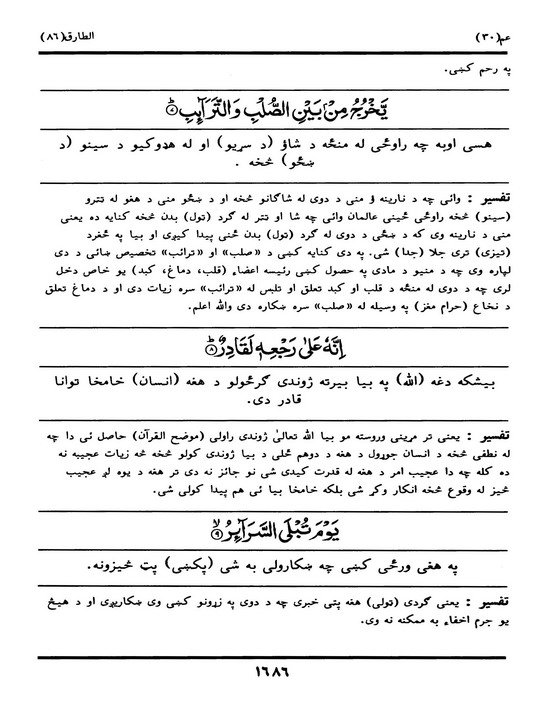 عم(۳۰)
الطارق(۸۶)
په رحم کښې.
يَّخْرُجُ مِنْ بَيْنِ الصُّلْبِ وَالتَّرَآئِبِ ۷
هسې اوبه چه راوځی له منځه د شاؤ (د سړیو) او له هډوکیو د سینو (د
ښځو) څخه .
تفسیر : وائی چه د نارینه ؤ منی د دوی له شاگانو څخه او د ښځو منی د هغو له تترو
(سینو) څخه راوځی ځینی عالمان وائی چه شا او تتر له گرد (تول) بدن څخه کنایه ده یعنی
منی د نارینه وی که د ښځی د دوی له گرد (تول) بدن ځنی پیدا کیږی او بیا په ځغرد
(تیزی) تری جلا (جدا) شی. په دی کنایه کښی د «صلب» او «ترائب» تخصیص ښائی د دی
لپاره وی چه د منیو د مادی په حصول کښی رئیسه اعضاء (قلب، دماغ، کبد) یو خاص دخل
لری چه د دوی له منځه د قلب او کبد تعلق او تلبس له «ترائب» سره زیات دی او د دماغ تعلق
د نخاع (حرام مغز) په وسیله له «صلب» سره ښکاره دی والله اعلم.
اِنَّهٗ عَلٰى رَجْعِهٖ لَقَادِرٌ ۸
بیشکه دغه (الله) په بیا بیرته ژوندی گرځولو د هغه (انسان) خامخا توانا
قادر دی.
تفسیر : یعنی تر مړینی وروسته مو بیا الله تعالیٰ ژوندی راولی (موضح القرآن) حاصل ئی دا چه
له نطفی څخه د انسان جوړول د هغه د دوهم ځلی د بیا ژوندی کولو څخه څه زیات عجیبه نه
ده کله چه دا عجیب امر د هغه له قدرت کیدی شی نو جائز نه دی تر هغه د یوه لږ عجیب
څیز له وقوع څخه انکار وکړ شی بلکه خامخا بیا ئی هم پیدا کولی شی.
يَوْمَ تُبْلَى السَّرَآئِرُ ۹
په هغی ورځی کښی چه ښکارولی به شی (پکښی) پټ څیزونه.
تفسیر : یعنی گردی (تولی) هغه پتی خبری چه د دوی په زړونو کښی وی ښکاریږی او د هیڅ
یو جرم اخفاء به ممکنه نه وی.
۱۶۸۶